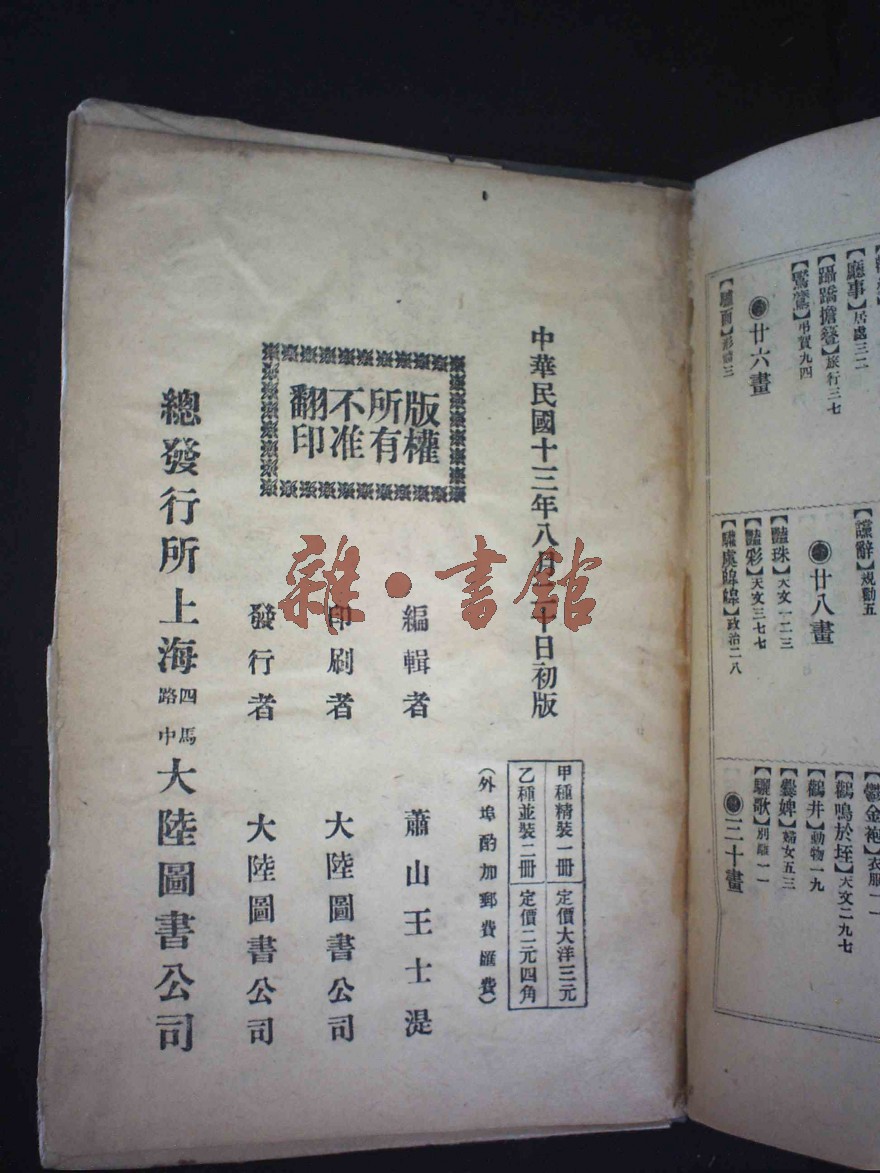 中華民國十三年八月二十日初版
版權
所有
不准
翻印
甲種精裝一冊 定價大洋三元
乙種並裝二冊 定價二元四角
(外埠酌加郵費匯費)
編輯者 蕭山王士湜
印刷者 大陸圖書公司
發行者 大陸圖書公司
總發行所上海四馬路中大陸圖書公司
雜·書館
【廳事】居處三二
【躡蹻擔簦】旅行三七
廿六畫
【讕辭】規勸五
廿八畫
【豔珠】天文一二三
【豔彩】天文三七七
【鬱金袍】衣服一一
【鸛鳴於垤】天文二九七
【鸛井】動物一九
【爨婢】婦女五三
【驪歌】別離一一
三十畫